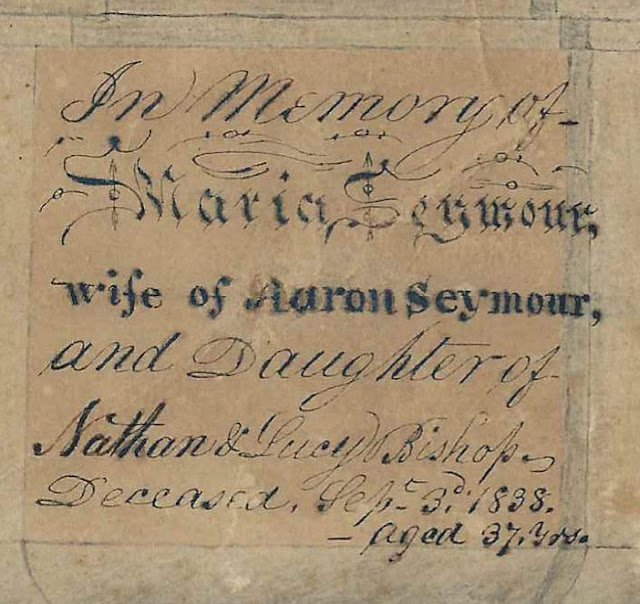 In Memory of
Maria Seymour,
wife of Aaron Seymour,
and Daughter of
Nathan & Lucy Bishop
Deceased, Sept. 3d. 1838.
— aged 37. Yrs.